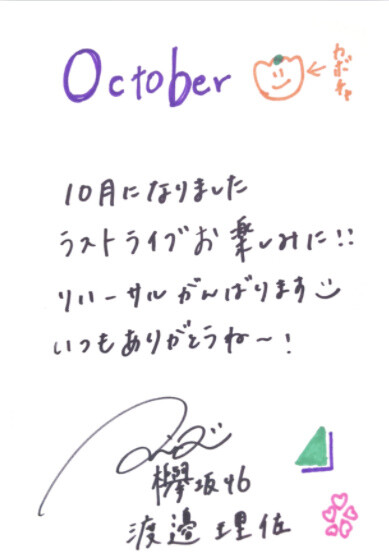 October
かぼちゃ
10月になりました
ラストライブお楽しみに!!
リハーサルがんばります
いつもありがとうね〜!
欅坂46
渡邉理佐